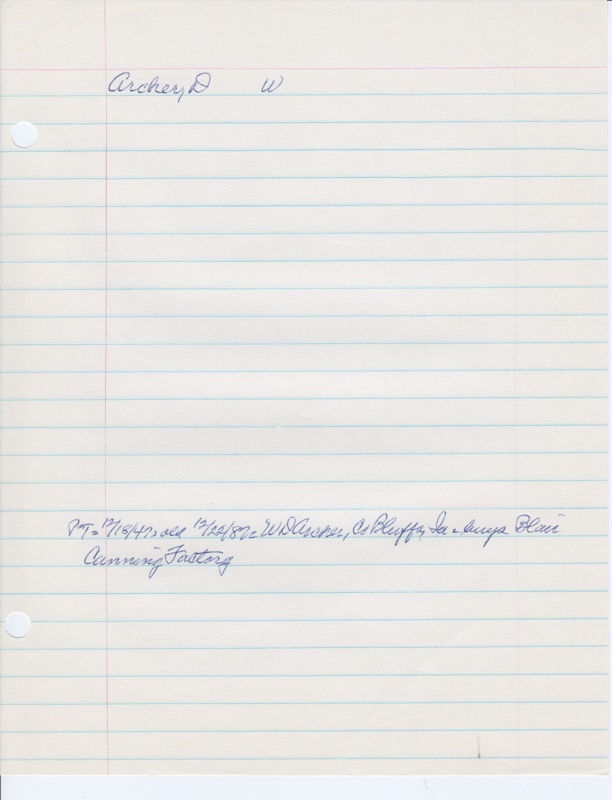 Archer, D W
PT = 12/18/47 = old 12/22/87 = W D Archer, Co Bluffs, Ia = buys Blair
Canning Factory